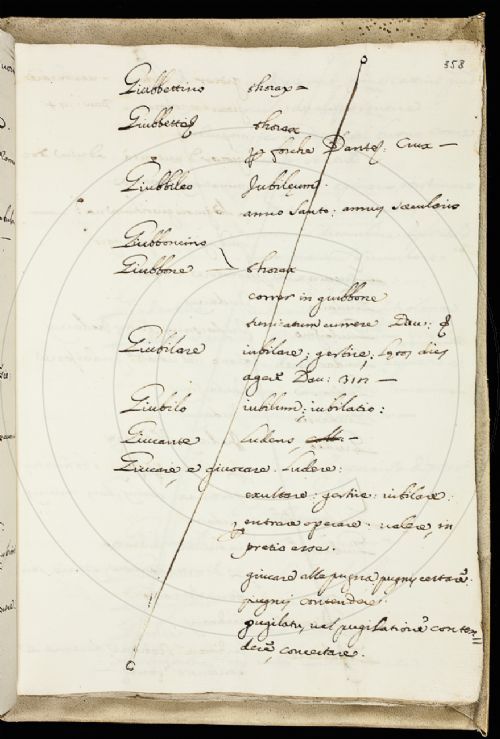 358
Giubbettino thorax =
Giubbette thorax
p forche Dante: Crux —
Giubbileo Jubileum.
anno santo: annus sæcularis
Giubboncino
Giubbone — thorax
correr in giubbone
tunicatum currere Dau:
Giubilare iubilare; gestire; dies
agere Dau: 317 —
Giubilo iubilum; iubilatio:
Giucante Ludens, —
Giucare, e giuocare. Ludere:
exultare: gestire: iubilare:
p entrare operare: valere, in
pretio esse.
giucare alle pugna pugnis certare:
pugnis contendere:
pugilatu, vel pugilatione conten=
dere, concertare.